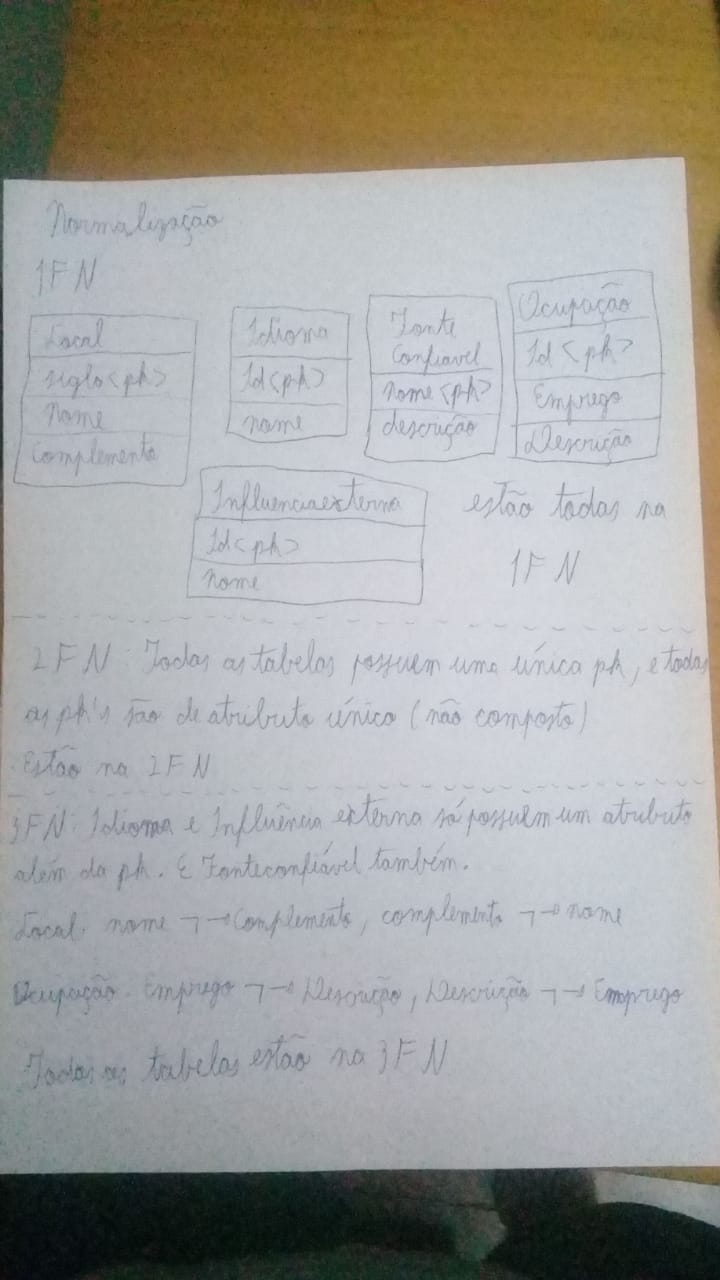 Normalização
1FN
Local
sigla<pk>
Nome
Complemento
Idioma
Id<pk>
nome
Fonte
Confiavel
nome<pk>
descrição
Ocupação
Id <pk>
Emprego
Descrição
Influenciaexterna
Id<pk>
nome
estão todas na
1FN
2FN: Todas as tabelas possuem uma única pk, e todas
as pk's são de atributo único (não composto)
Estão na 2FN
3FN: Idioma e Influência externa só possuem um atributo
além da pk. E Fonteconfiável também.
Local: nome ¬→ Complemento, complemento ¬→ nome
Ocupação: Emprego ¬→ Descrição, Descrição ¬→ Emprego
Todas as tabelas estão na 3FN